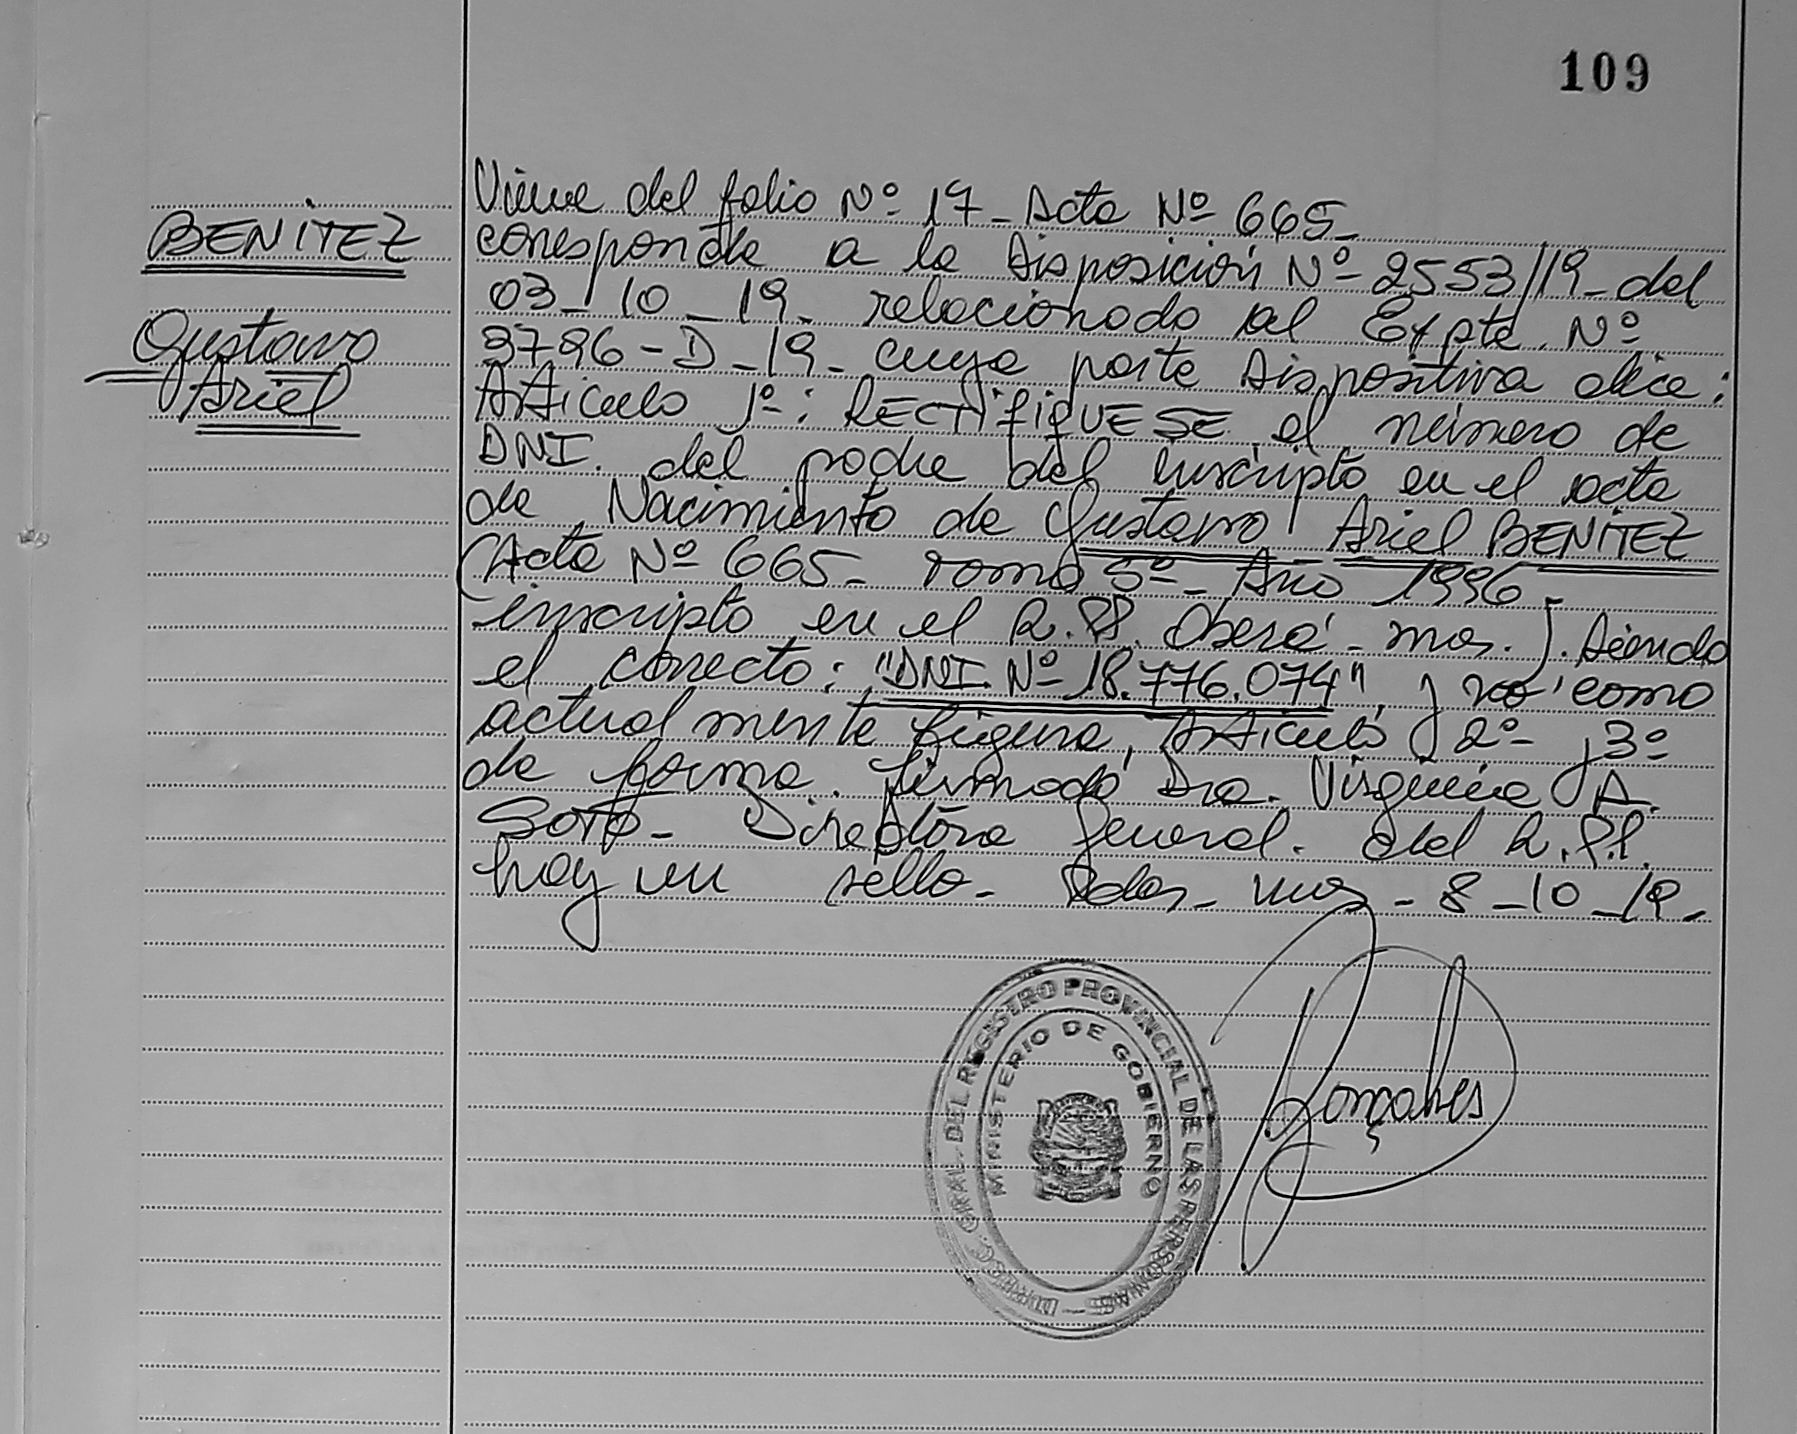 109
BENITEZ
Gustavo
Ariel
Viene del folio Nº 17 - Acta Nº 665 -
corresponde a la Disposición Nº 2553/19 - del
03 - 10 - 19 - relacionado al Expte. Nº
3796 - D - 19 - cuya parte Dispositiva dice:
Artículo 1º: RECTIFIQUESE el número de
DNI. del padre del inscripto en el acta
de Nacimiento de Gustavo Ariel BENITEZ
(Acta Nº 665 - Tomo 5º - Año 1996 -
inscripto en el R.P. Oberá - mns.). Siendo
el correcto: "DNI. Nº 18.776.074", y no como
actualmente figura, Artículo 2º y 3º
de forma. Firmado Dra. Virginia A.
SOTO - Directora General. del R.P.P.
hay un sello - Pdas - mns - 8 - 10 - 19 -
Gonçalves
DIREC. GRAL. DEL REGISTRO PROVINCIAL DE LAS PERSONAS
MINISTERIO DE GOBIERNO